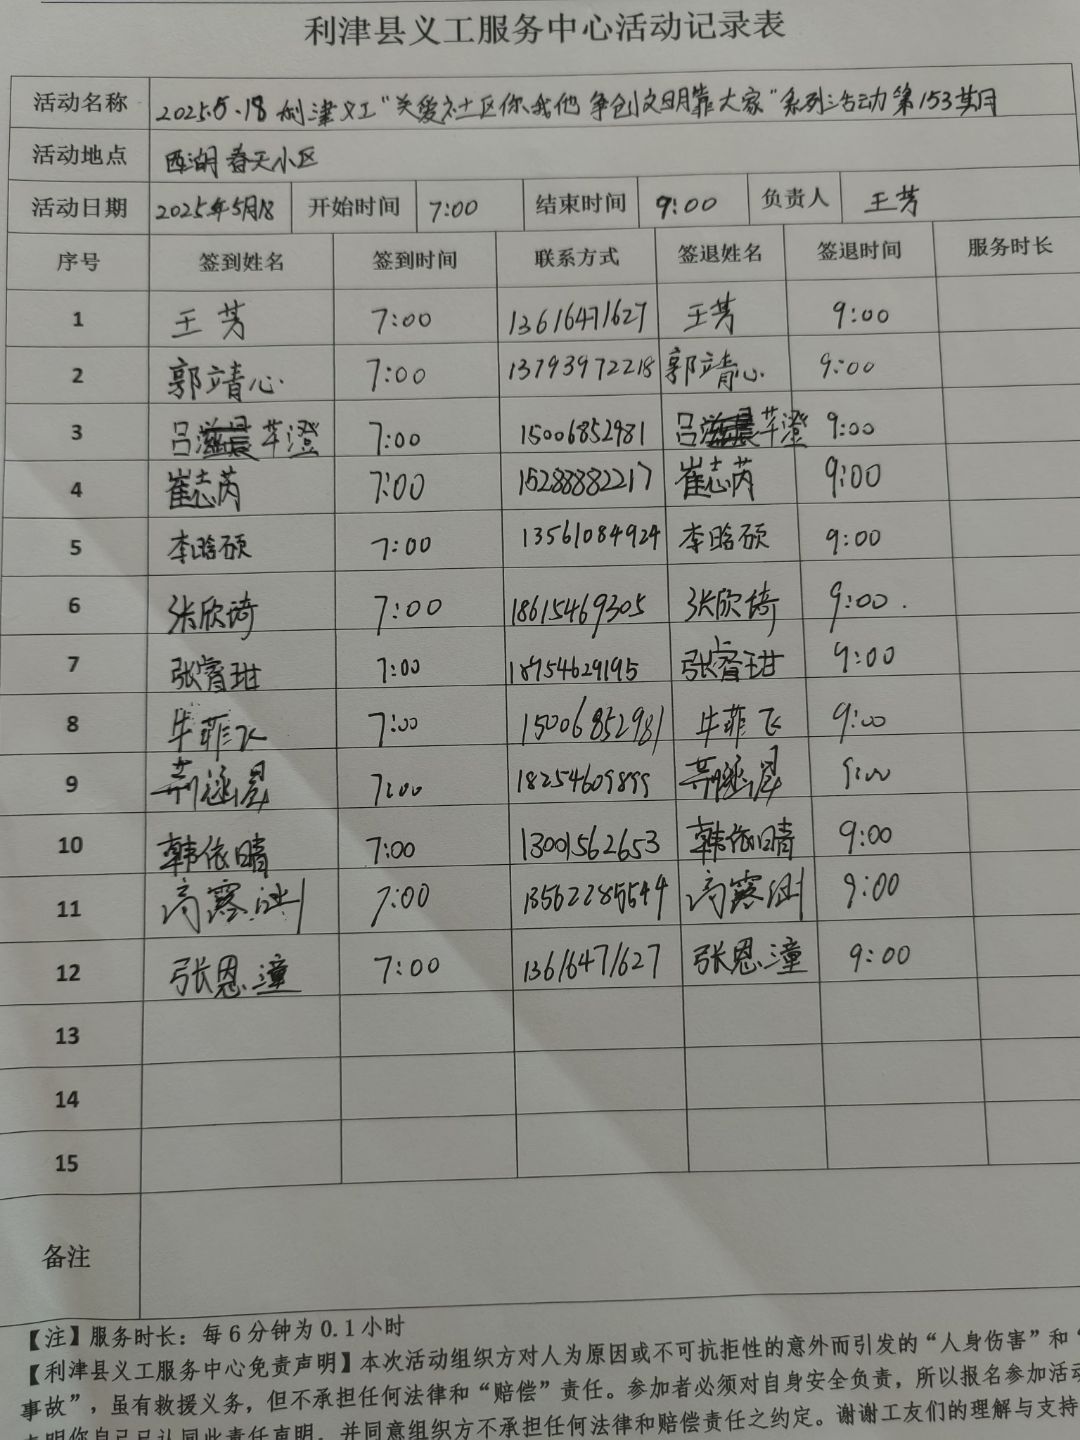 利津县义工服务中心活动记录表
活动名称 2025.5.18 利津义工“关爱社区你我他 争创文明靠大家”系列活动第153期
活动地点 西湖春天小区
活动日期 2025年5月18 开始时间 7:00 结束时间 9:00 负责人 王芳
序号 签到姓名 签到时间 联系方式 签退姓名 签退时间 服务时长
1 王芳 7:00 13616471627 王芳 9:00
2 郭靖心 7:00 13793972218 郭靖心 9:00
3 吕芊澄 7:00 15006852981 吕芊澄 9:00
4 崔志芮 7:00 15288882217 崔志芮 9:00
5 李晗硕 7:00 13561084924 李晗硕 9:00
6 张欣琦 7:00 18615469305 张欣琦 9:00
7 张睿玵 7:00 18754629195 张睿玵 9:00
8 牛菲飞 7:00 15006852981 牛菲飞 9:00
9 荆涵晟 7:00 18254609899 荆涵晟 9:00
10 韩依晴 7:00 13001562653 韩依晴 9:00
11 高露 7:00 13562285544 高露 9:00
12 张恩潼 7:00 13616471627 张恩潼 9:00
13
14
15
备注
【注】服务时长：每6分钟为0.1小时
【利津县义工服务中心免责声明】本次活动组织方对人为原因或不可抗拒性的意外而引发的“人身伤害”和“
事故”，虽有救援义务，但不承担任何法律和“赔偿”责任。参加者必须对自身安全负责，所以报名参加活动
声明你自己已认同此责任声明，并同意组织方不承担任何法律和赔偿责任之约定。谢谢工友们的理解与支持